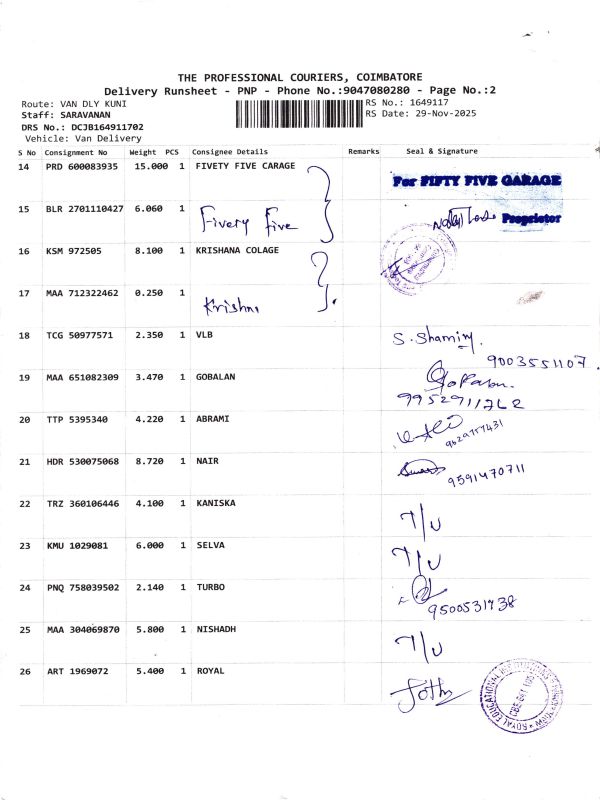 THE PROFESSIONAL COURIERS, COIMBATORE
Delivery Runsheet - PNP - Phone No.:9047080280 - Page No.:2
Route: VAN DLY KUNI
RS No.: 1649117
Staff: SARAVANAN
RS Date: 29-Nov-2025
DRS No.: DCJB164911702
Vehicle: Van Delivery
S No Consignment No Weight PCS Consignee Details Remarks Seal & Signature
14 PRD 600083935 15.000 1 FIVETY FIVE CARAGE
For FIFTY FIVE GARAGE
15 BLR 2701110427 6.060 1
Fivery Five
Proprietor
16 KSM 972505 8.100 1 KRISHANA COLAGE
17 MAA 712322462 0.250 1
Krishna
18 TCG 50977571 2.350 1 VLB
S. Shaminy
9003551107
19 MAA 651082309 3.470 1 GOBALAN
20 TTP 5395340 4.220 1 ABRAMI
21 HDR 530075068 8.720 1 NAIR
9591470711
22 TRZ 360106446 4.100 1 KANISKA
T/U
23 KMU 1029081 6.000 1 SELVA
T/U
24 PNQ 758039502 2.140 1 TURBO
9500531738
25 MAA 304069870 5.800 1 NISHADH
T/U
26 ART 1969072 5.400 1 ROYAL